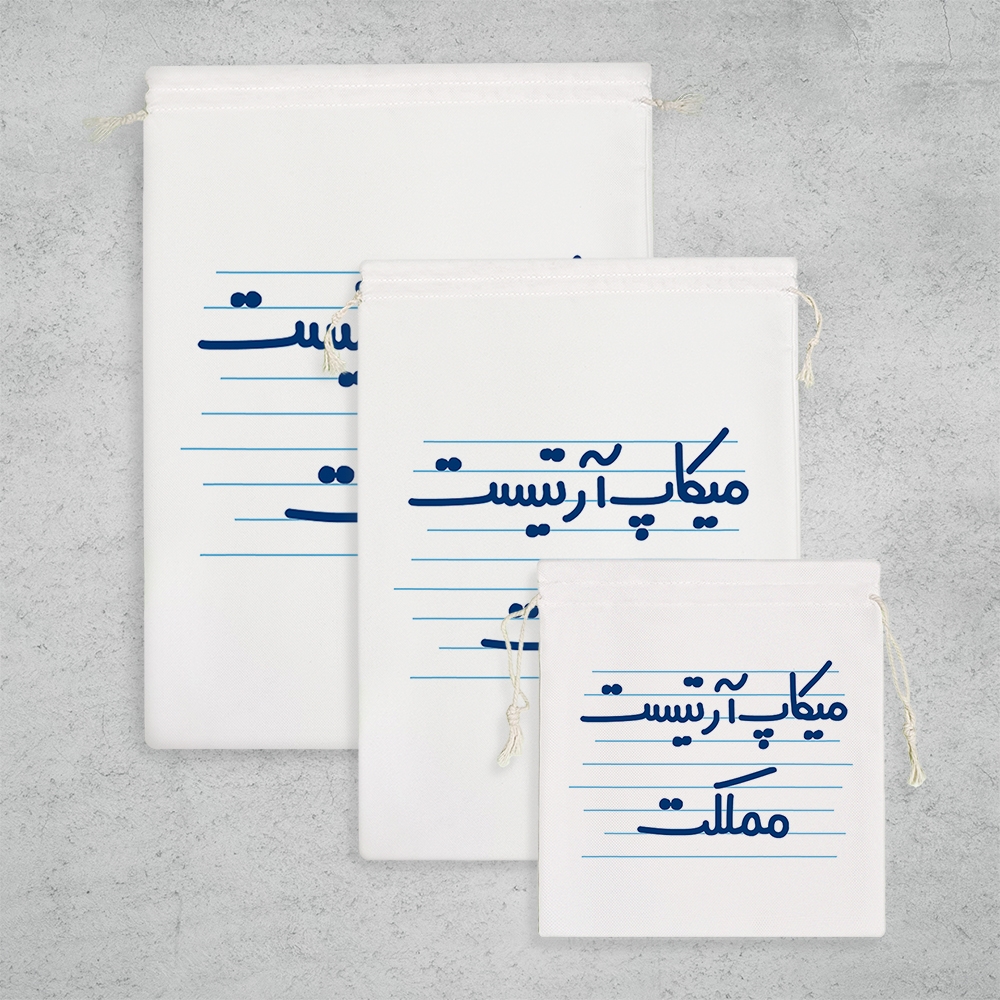 میکاپ آرتیست
میکاپ آرتیست
مملکت